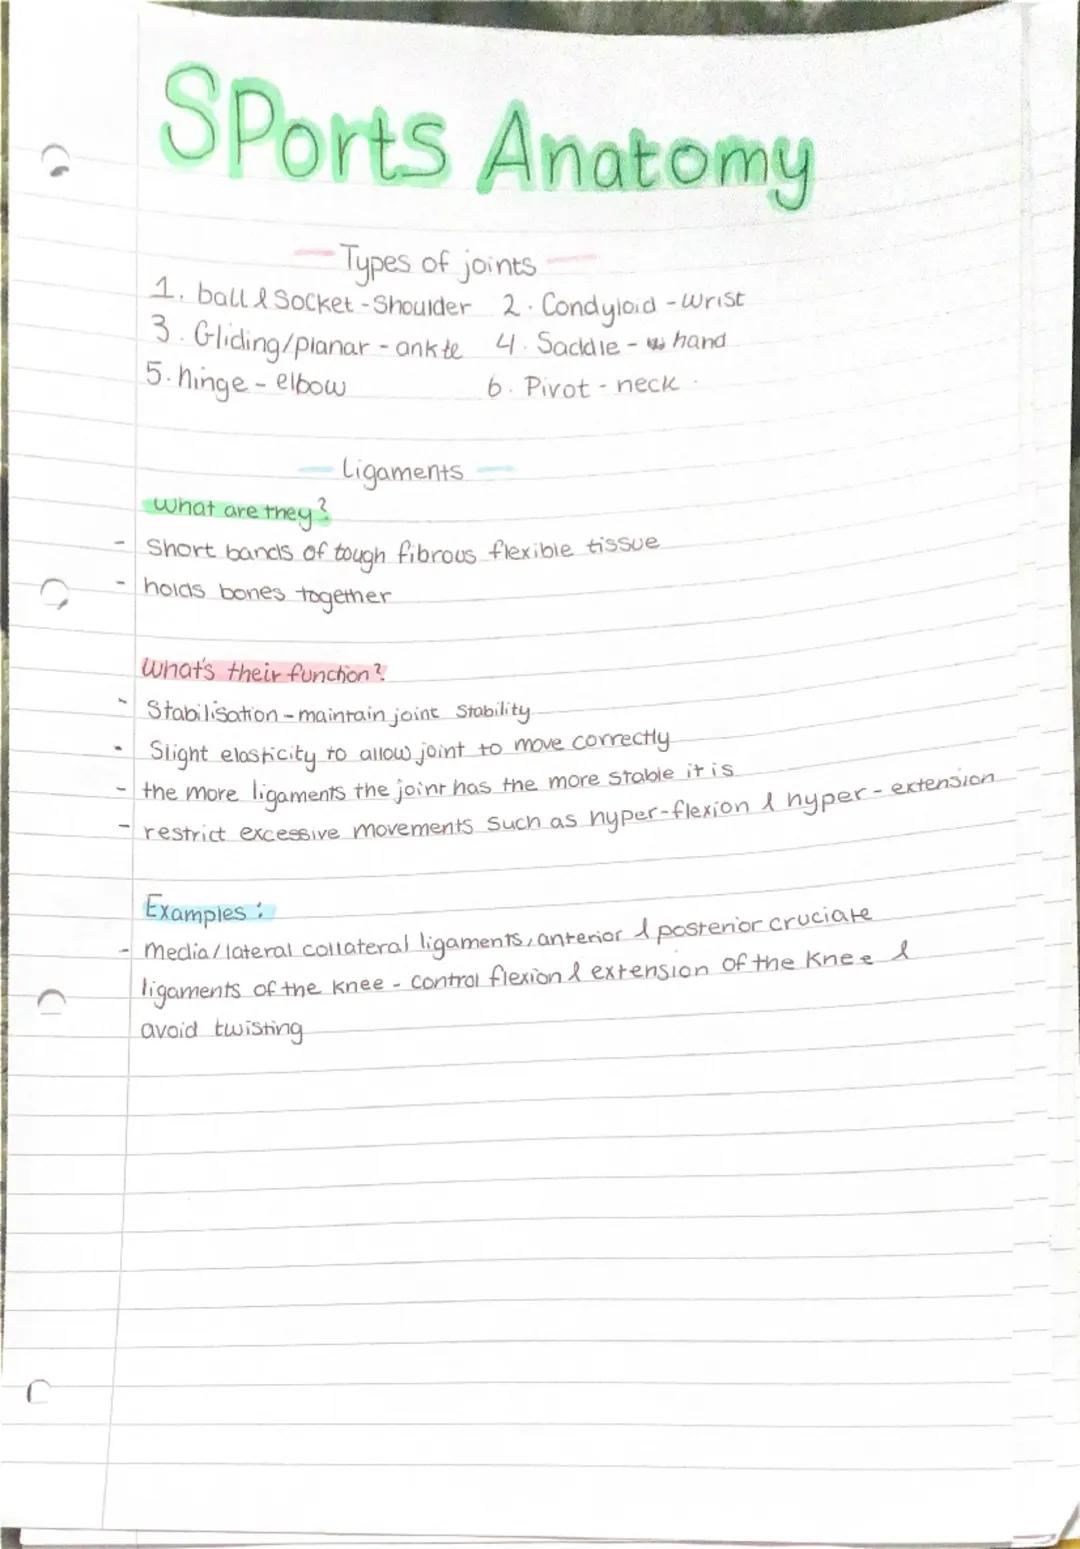 SPorts Anatomy
Types of joints
1. ball & Socket - Shoulder 2. Condyloid - Wrist
3. Gliding/planar - ankle 4. Saddle - hand
5. hinge - elbow 6. Pivot - neck
Ligaments
What are they?
- Short bands of tough fibrous flexible tissue
- holds bones together
What's their function?
- Stabilisation - maintain joint Stability
- Slight elasticity to allow joint to move correctly
- the more ligaments the joint has the more stable it is
- restrict excessive movements such as hyper-flexion & hyper-extension
Examples:
- Media/lateral collateral ligaments, anterior & posterior cruciate
ligaments of the knee - control flexion & extension of the Knee &
avoid twisting